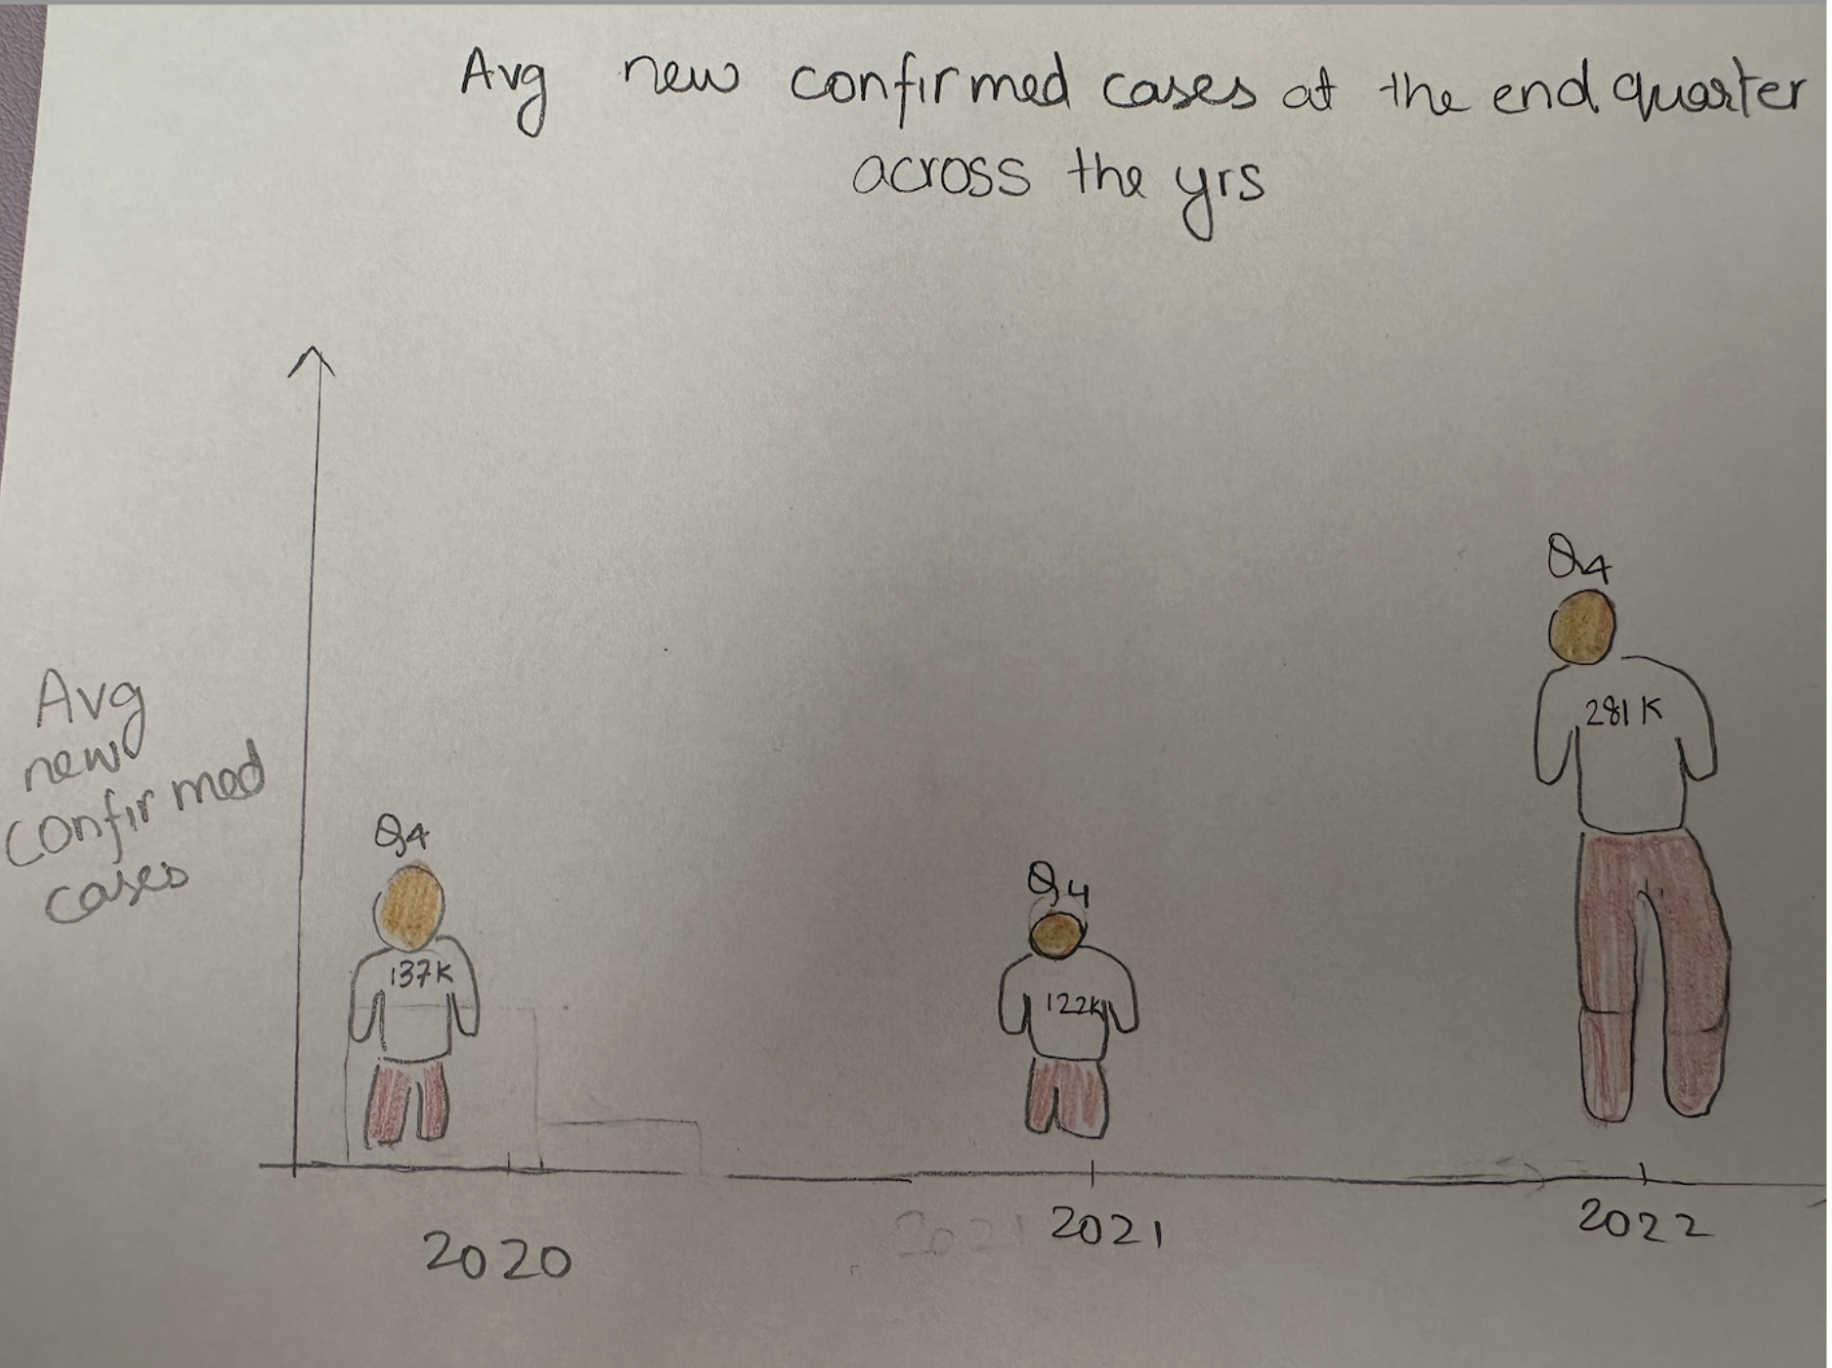 Avg new confirmed cases at the end quarter
across the yrs
Avg
new
confirmed
cases
Q4
137K
Q4
122K
Q4
281K
2020
2021
2021
2022